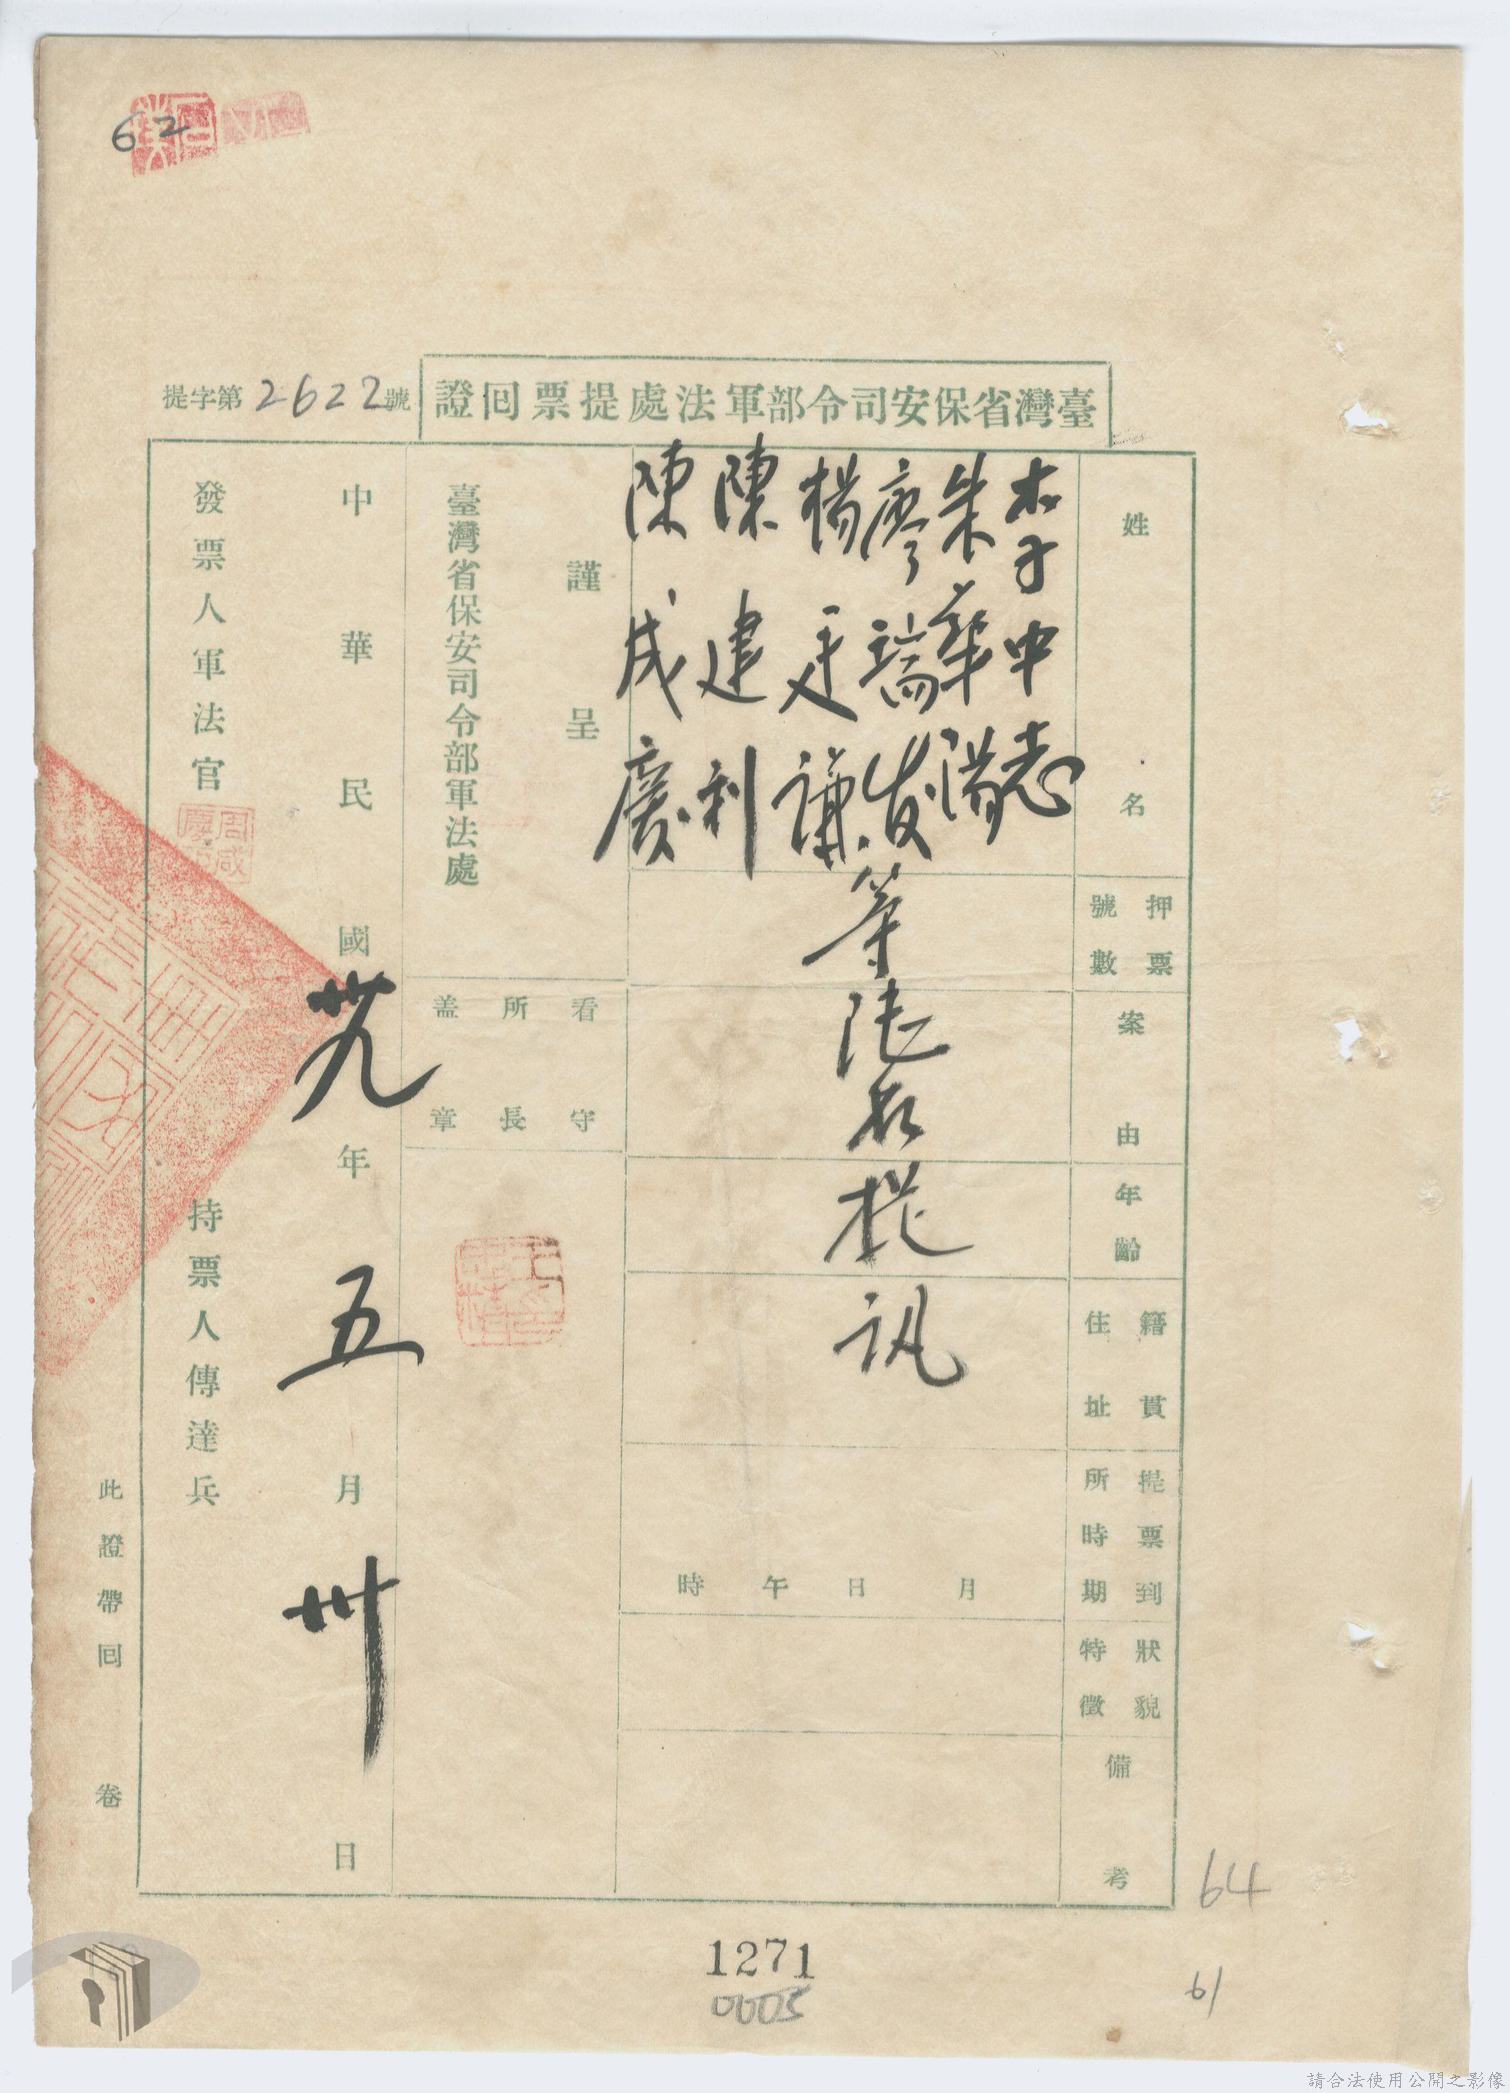 62
臺灣省保安司令部軍法處提票囘證
提字第2622號
姓名
押票號數
案由
年齡
籍貫住址
提票到所時期
狀貌特徵
備考
李中志
朱華陽
廖瑞發
楊廷謙
陳建利
陳成慶
等陸名提訊
月日午時
謹呈
臺灣省保安司令部軍法處
看守所長蓋章
中華民國卅九年五月卅日
發票人軍法官
周咸慶
持票人傳達兵
此證帶囘
卷
64
1271
0003
61
請合法使用公開之影像